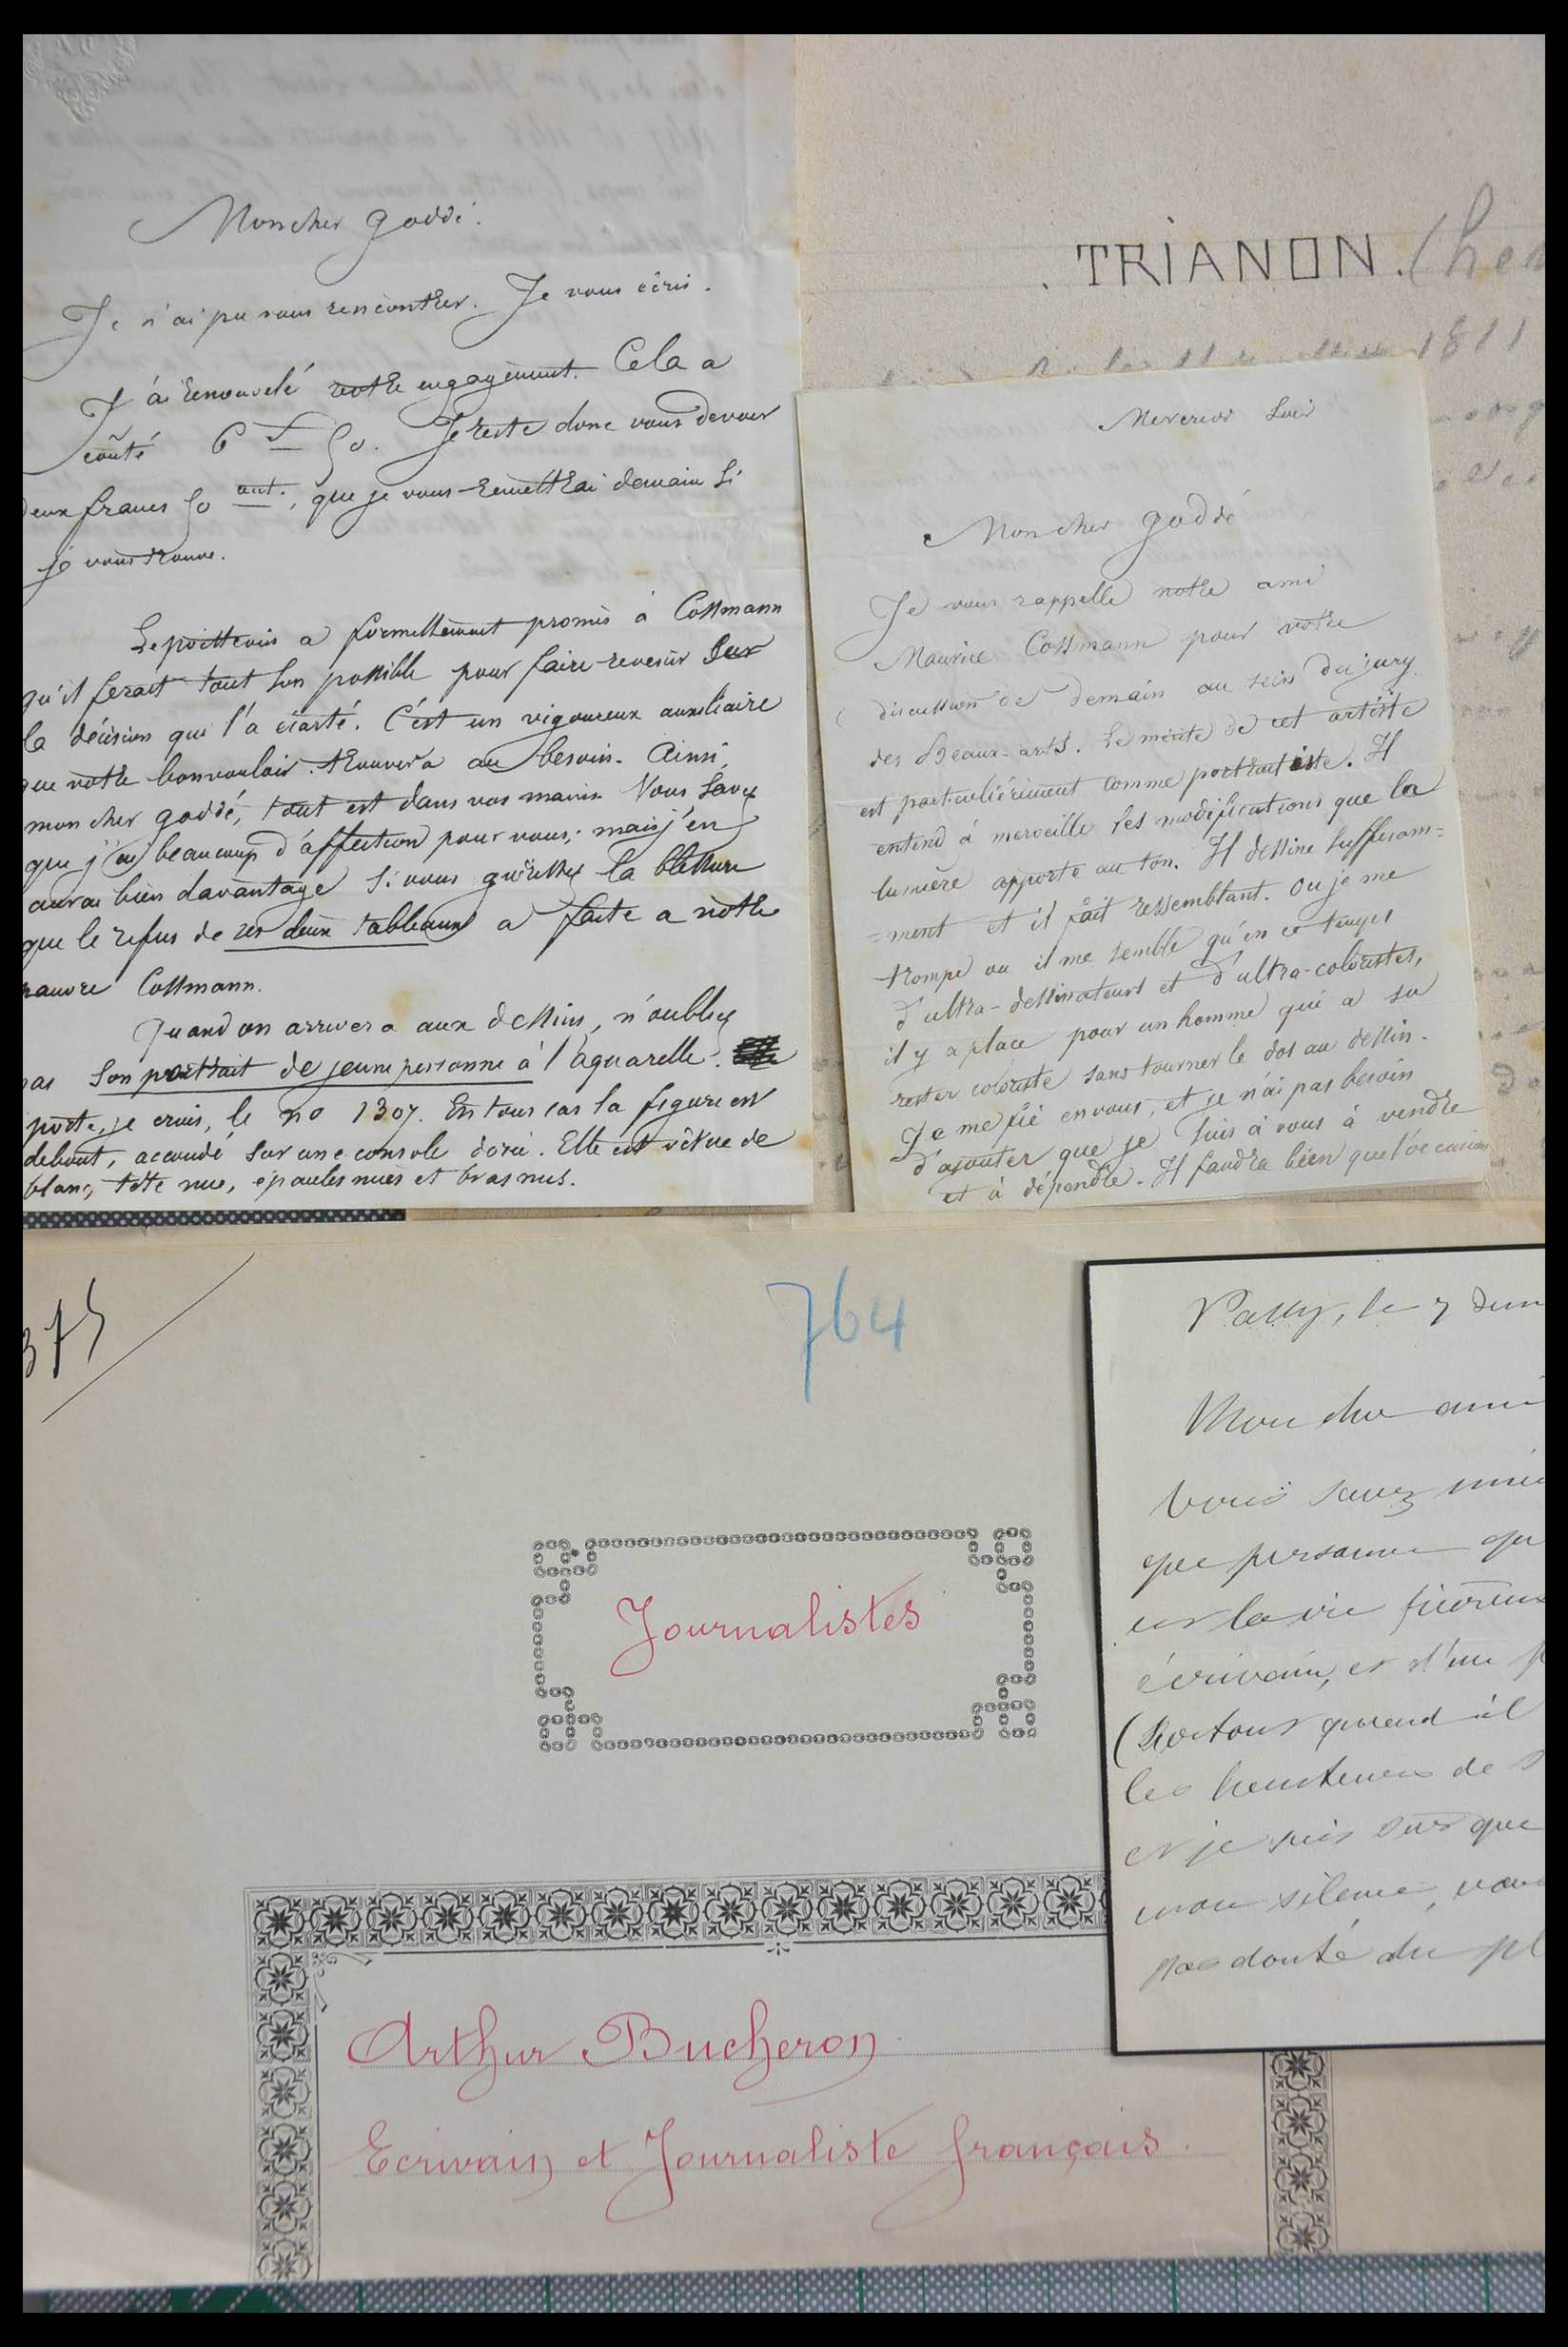 Mon cher Goddé.
Je n'ai pu vous rencontrer. Je vous écris.
J'ai renouvelé votre engagement. Cela a
coûté 6 f 50. Je reste donc vous devoir
deux francs 50 cent., que je vous remettrai demain si
je vous trouve.
Lepoittevin a formellement promis à Cottmann
qu'il ferait tout son possible pour faire revenir sur
la décision qui l'a écarté. C'est un vigoureux auxiliaire
que votre bon vouloir trouvera au besoin. Ainsi,
mon cher Goddé, tout est dans vos mains. Vous savez
que j'ai beaucoup d'affection pour vous; mais j'en
aurai bien davantage si vous guérissez la blessure
que le refus de ses deux tableaux a faite a notre
pauvre Cottmann.
Quand on arrivera aux dessins, n'oubliez
pas son portrait de jeune personne à l'aquarelle.
porte, je crois, le no 1307. En tous cas la figure est
debout, accoudé sur une console dorée. Elle est vêtue de
blanc, tête nue, épaules nues et bras nus.
. TRIANON. (hen
1811
Mercredi soir
Mon cher Goddé
Je vous rappelle notre ami
Maurice Cottmann pour votre
discussion de demain au sein du jury
des Beaux-arts. Le mérite de cet artiste
est particulièrement comme portraitiste. Il
entend à merveille les modifications que la
lumière apporte au ton. Il dessine suffisam=
=ment et il fait ressemblant. Ou je me
trompe ou il me semble qu'en ce temps
d'ultra-dessinateurs et d'ultra-coloristes,
il y a place pour un homme qui a su
rester coloriste sans tourner le dos au dessin.
Je me fie en vous, et je n'ai pas besoin
d'ajouter que je suis à vous à vendre
et à dépendre. Il faudra bien que l'occasion
375
764
Passy, le 7
Mon cher ami
Vous savez
que personne
est la vie
écrivain, et d'un
(surtout quand il
les de
et je suis sûr que
mon silence, vous
pas douté du pl
Journalistes
Arthur Bucheron
Ecrivain et Journaliste français.